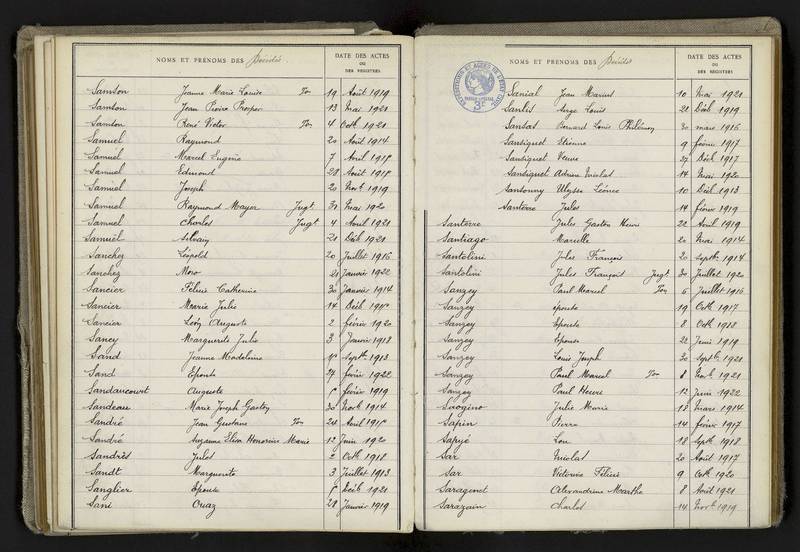 NOMS ET PRÉNOMS DES Décédés
DATE DES ACTES
OU
DES REGISTRES
Samson Jeanne Marie Louise Ton 19 Août 1919
Samson Jean Pierre Prosper 13 Mai 1921
Samson René Victor Ton 4 Octb 1921
Samuel Raymond 20 Août 1914
Samuel Marcel Eugène 7 Avril 1918
Samuel Edmond 28 Août 1918
Samuel Joseph 20 Novb 1919
Samuel Raymond Mayer Jugt 31 Mai 1920
Samuel Charles Jugt 4 Avril 1921
Samuël Sylvain 21 Déb 1921
Sanchez Léopold 20 Juillet 1916
Sanchez Moro 21 Janvier 1922
Sancier Félicie Catherine 30 Janvier 1914
Sancier Marie Julie 14 Déb
Sancier Léon Auguste 2 février 1920
Sancy Marguerite Julie 3 Janvier 1918
Sand Jeanne Madeleine Septb 1913
Sand Epouse 24 février 1922
Sandaucourt Auguste février 1919
Sandeau Marie Joseph Gaston 30 Novb 1914
Sandré Jean Gustave Ton 24 Avril 1918
Sandré Suzanne Elisa Honorine Marie 12 Juin 1920
Sandrès Jules 2 Octb 1918
Sandt Marguerite 3 Juillet 1913
Sanglier Epouse Déb 1921
Sani Ouaz 28 Janvier 1919
NOMS ET PRÉNOMS DES Décédés
DATE DES ACTES
OU
DES REGISTRES
Sanial Jean Marius 10 Mai 1921
Sanlis Ange Louis 21 Déb 1919
Sansas Bernard Louis Philémon 30 mars 1916
Sansiquet Etienne 9 février 1917
Sansiquet Veuve 27 Déb 1917
Sansiquet Adrien Nicolas 14 Mai 1920
Santonny Ulysse Léonce 10 Déb 1913
Santerre Jules 14 février 1919
Santerre Jules Gaston Henri 22 Avril 1919
Santiago Marcelle 20 Mai 1914
Santolini Jules François 20 Septb 1914
Santolini Jules François Jugt 30 Juillet 1920
Sanzey Paul Marcel Ton 6 Juillet 1916
Sanzey Epouse 19 Octb 1917
Sanzey Epouse 8 Octb 1918
Sanzey Epouse 21 Juin 1919
Sanzey Louis Joseph 30 Septb 1921
Sanzey Paul Marcel Ton 8 Novb 1921
Sanzey Paul Henri 12 Juin 1922
Julie Marie 18 Mars 1914
Sapin Pierre 14 février 1917
Lou 18 Septb 1918
Sar Nicolas 20 Août 1917
Sar Victorine Félicie 9 Octb 1920
Saragenet Alexandrine Marthe 8 Août 1921
Sarazain Charles 14 Novb 1919